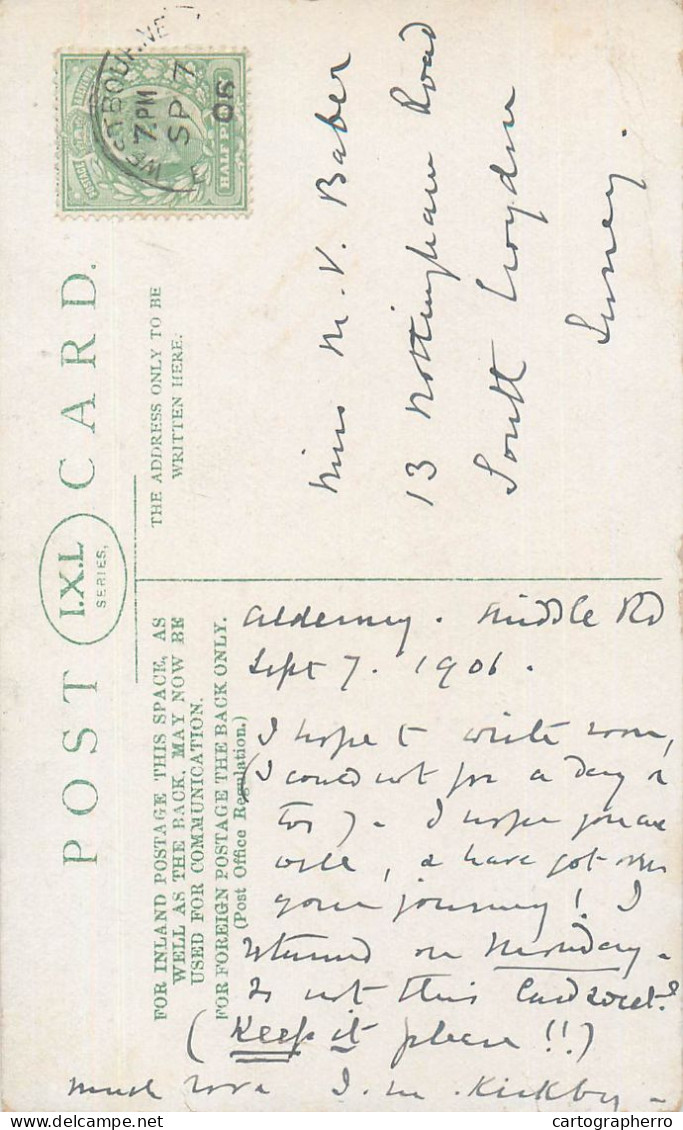 POST CARD.
I.X.L
SERIES.
FOR INLAND POSTAGE THIS SPACE, AS
WELL AS THE BACK, MAY NOW BE
USED FOR COMMUNICATION.
FOR FOREIGN POSTAGE THE BACK ONLY.
(Post Office Regulation.)
THE ADDRESS ONLY TO BE
WRITTEN HERE.
WESTBOURNE
7. PM
SP 7
06
POSTAGE
HALF PENNY
Miss M. V. Baber
13 Nottingham Road
South Croydon
Surrey.
Alderney. Middle Rd
Sept 7. 1906.
I hope to write soon,
(I could not for a day or
two). I hope you are
well, & have got over
your journey! I
returned on Monday.
Is not this Card sweet?
(Keep it please!!)
much love I. M. Kirkby.
cartographerro